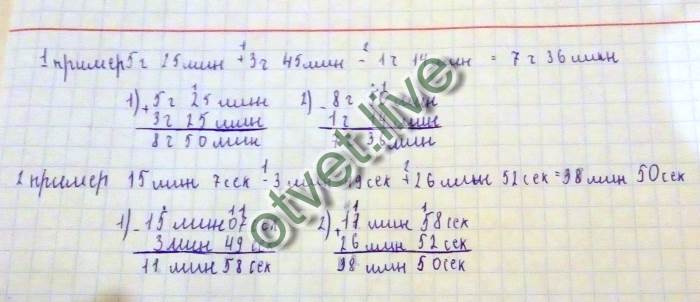 1 пример 5г 25 мин + 3г 45 мин - 1г 14 мин = 7г 36 мин
1) + 5г 25 мин 2) - 8г мин
3г 25 мин 1г мин
8г 50 мин 36 мин
2 пример 15 мин 7сек - 3 мин 49 сек + 26 мин 52 сек = 38 мин 50 сек
1) - 15 мин 07 2) + 11 мин 58 сек
3 мин 49 26 мин 52 сек
11 мин 58 сек 38 мин 50 сек
otvet.live